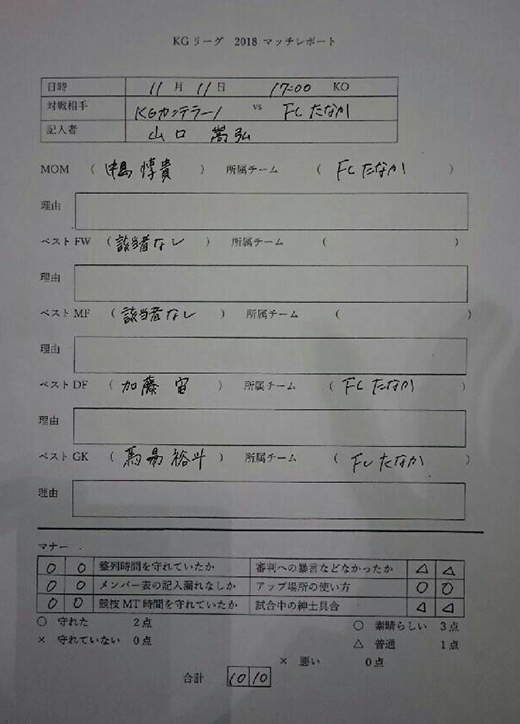 KGリーグ 2018 マッチレポート
日時 11月11日 17:00 KO
対戦相手 KGカンテラーノ vs FCたなか
記入者 山口 嵩弘
MOM (中島 惇貴) 所属チーム (FCたなか)
理由
ベストFW (該当者なし) 所属チーム ( )
理由
ベストMF (該当者なし) 所属チーム ( )
理由
ベストDF (加藤 宙) 所属チーム (FCたなか)
理由
ベストGK (馬場 裕斗) 所属チーム (FCたなか)
理由
マナー
○ ○ 整列時間を守れていたか 審判への暴言などなかったか △ △
○ ○ メンバー表の記入漏れなしか アップ場所の使い方 ○ ○
○ ○ 競技MT時間を守れていたか 試合中の紳士具合 △ △
○ 守れた 2点 ○ 素晴らしい 3点
× 守れていない 0点 △ 普通 1点
× 悪い 0点
合計 10 10